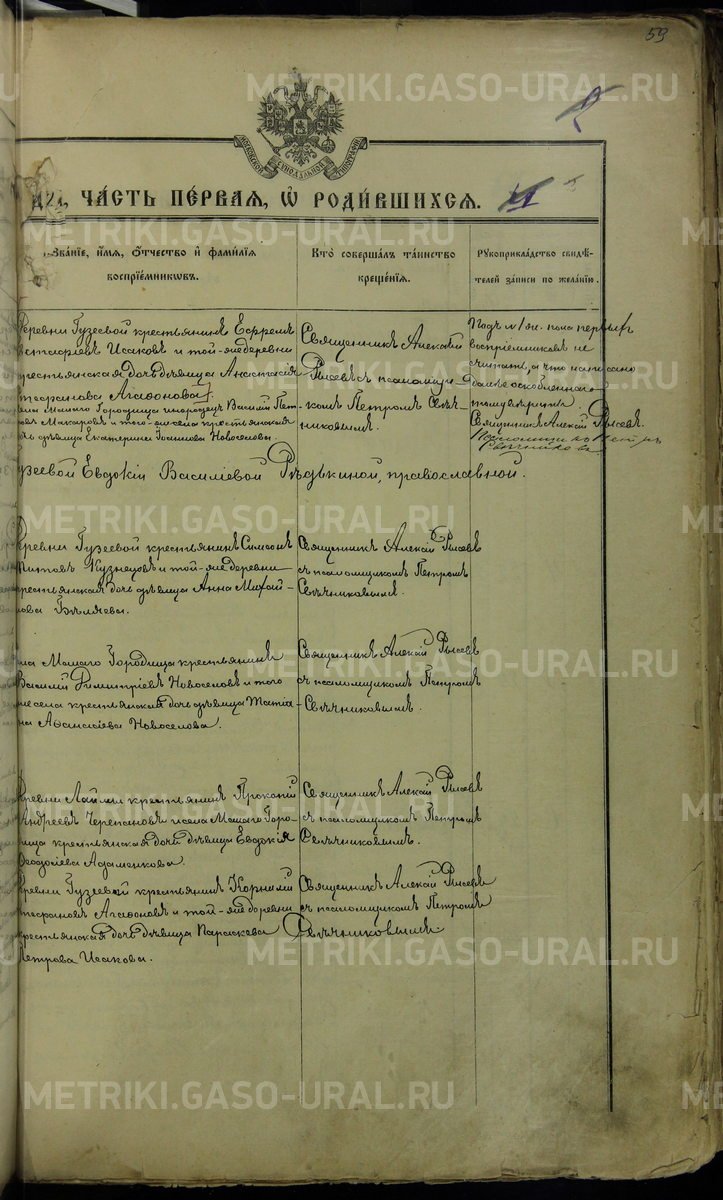 59
METRIKI.GASO-URAL.RU
МОСКОВСКОЙ СѴНОДАЛЬНОЙ ТИПОГРАФІИ
ЧА́СТЬ ПЕ́РВАѦ, Ѡ҆ РОДИ́ВШИХСѦ.
Зва́нїе, и҆́мѧ, ѻ҆́тчество и҆ фами́лїѧ воспрїе́мникѡвъ.
Кто̀ соверша́лъ та́инство креще́нїѧ.
Рꙋкоприкла́дство свидѣ́телей за́писи по жела́нїю.
деревни Гузеевой крестьянинъ Ефремъ
Исаковъ и той-же деревни
крестьянская дочь дѣвица Анастасія
Стефанова Агафонова.
села Малаго Городища инородецъ Василій Пет-
ровъ Макаровъ и того-же села крестьянская
дочь дѣвица Екатерина Іоаннова Новоселова.
Священникъ Алексій
Рысевъ съ псаломщи-
комъ Петромъ Свѣч-
никовымъ.
Подъ № 1 ж. пола первыхъ
воспріемниковъ не
считать, а что написано
далѣе
тому вѣрить.
Священникъ Алексій Рысевъ.
Псаломщикъ Петръ
Свѣчниковъ
Гузеевой Евдокіи Василіевой Рѣдькиной, православной.
Деревни Гузеевой крестьянинъ Симеонъ
Титовъ Кузнецовъ и той-же деревни
крестьянская дочь дѣвица Анна Михай-
лова Бѣляева.
Священникъ Алексій Рысевъ
съ псаломщикомъ Петромъ
Свѣчниковымъ.
села Малаго Городища крестьянинъ
Василій Димитріевъ Новоселовъ и того
же села крестьянская дочь дѣвица Татіа-
на Афанасіева Новоселова.
Священникъ Алексій Рысевъ
съ псаломщикомъ Петромъ
Свѣчниковымъ.
Деревни Лаймы крестьянинъ Прокопій
Андреевъ Черепановъ и села Малаго Горо-
дища крестьянская дочь дѣвица Евдокія
Ѳеодосіева Адаменкова.
Священникъ Алексій Рысевъ
съ псаломщикомъ Петромъ
Свѣчниковымъ.
Деревни Гузеевой крестьянинъ Корнилій
Стефановъ Агафоновъ и той-же деревни
крестьянская дочь дѣвица Параскева
Петрова Исакова.
Священникъ Алексій Рысевъ
съ псаломщикомъ Петромъ
Свѣчниковымъ